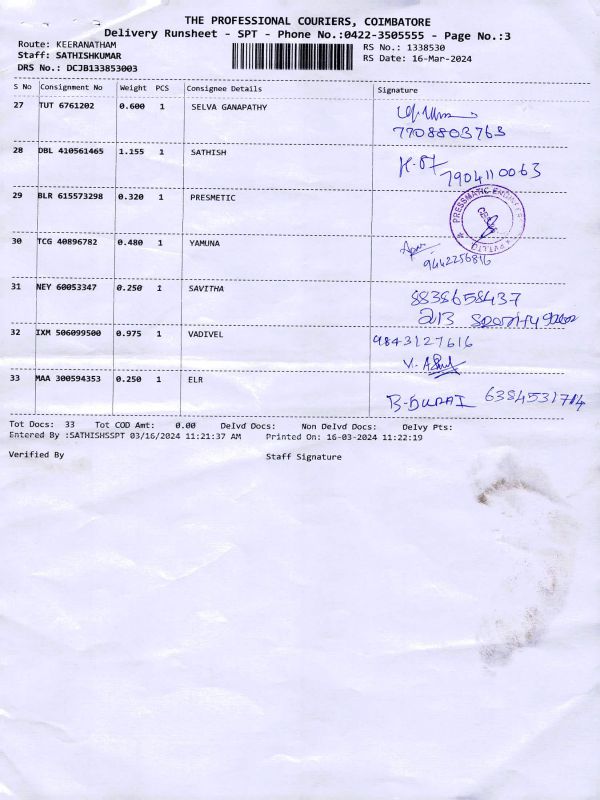 THE PROFESSIONAL COURIERS, COIMBATORE
Delivery Runsheet - SPT - Phone No.:0422-3505555 - Page No.:3
Route: KEERANATHAM
Staff: SATHISHKUMAR
DRS No.: DCJB133853003
RS No.: 1338530
RS Date: 16-Mar-2024
S No Consignment No Weight PCS Consignee Details Signature
27 TUT 6761202 0.600 1 SELVA GANAPATHY
7908803763
28 DBL 410561465 1.155 1 SATHISH
7904110063
29 BLR 615573298 0.320 1 PRESMETIC
PRESSMATIC ENGINEERS PVT.LTD. CBE
30 TCG 40896782 0.480 1 YAMUNA
9442256816
31 NEY 60053347 0.250 1 SAVITHA
8838658437
32 IXM 506099500 0.975 1 VADIVEL
9843127616
33 MAA 300594353 0.250 1 ELR
B-DURAI 6384531714
Tot Docs: 33 Tot COD Amt: 0.00 Delvd Docs: Non Delvd Docs: Delvy Pts:
Entered By :SATHISHSSPT 03/16/2024 11:21:37 AM Printed On: 16-03-2024 11:22:19
Verified By Staff Signature